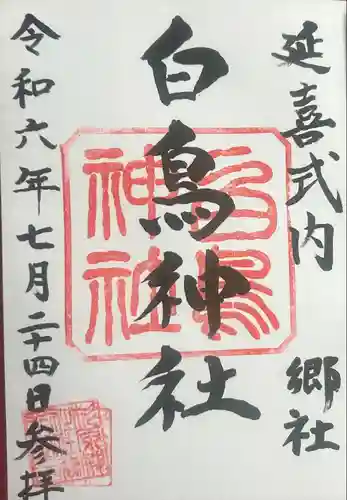 延喜式内 郷社
白鳥神社
令和六年七月二十四日参拝
白鳥神社